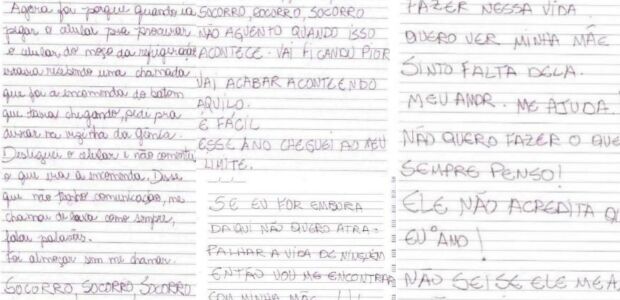 Agora foi porque quando ia
pegar o celular pra procurar
o celular do moço da refrigeração
estava recebendo uma chamada
que foi a encomenda do batom
que tava chegando, pedi pra
deixar na vizinha da Gânia.
Desliguei o celular e não comentei
o que era a encomenda. Disse
que não tenho comunicação, me
chamou de baixa como sempre,
falou palavrão.
Foi almoçar sem me chamar.
SOCORRO, SOCORRO, SOCORRO
SOCORRO, SOCORRO, SOCORRO
NÃO AGUENTO QUANDO ISSO
ACONTECE. VAI FICANDO PIOR
VAI ACABAR ACONTECENDO
AQUILO.
É FÁCIL
ESSE ANO CHEGUEI AO MEU
LIMITE.
SE EU FOR EMBORA
DAQUI NÃO QUERO ATRA-
PALHAR A VIDA DE NINGUÉM
ENTÃO VOU ME ENCONTRAR
COM MINHA MÃE !!!
FAZER NESSA VIDA
QUERO VER MINHA MÃE
SINTO FALTA DELA.
MEU AMOR. ME AJUDA.
NÃO QUERO FAZER O QUE
SEMPRE PENSO!
ELE NÃO ACREDITA QU
EU º AMO!
NÃO SEI SE ELE ME A